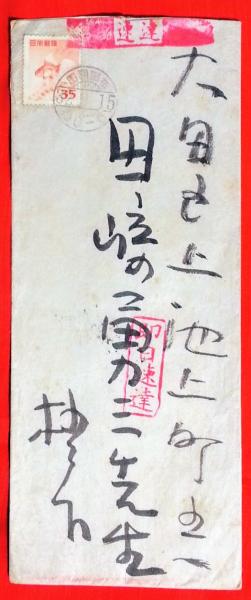 速達
日本郵便
35
15
大田区上池上町五一
田崎勇三先生
即日速達